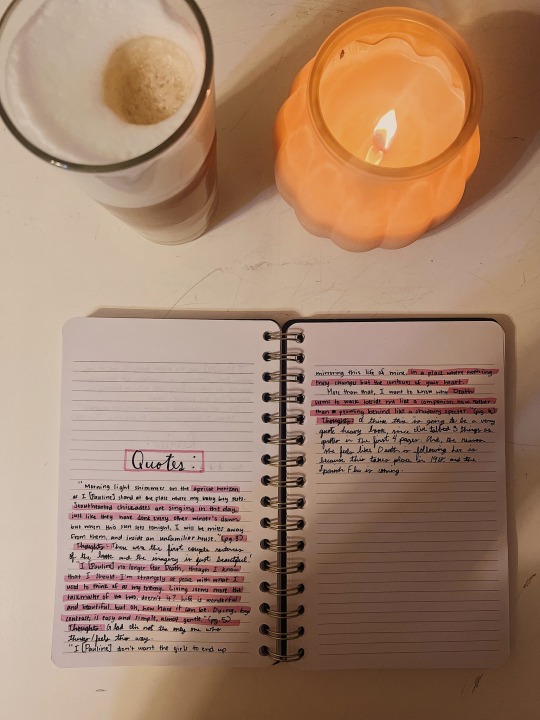 Quotes:
"Morning light shimmers on the apricot horizon
as I [Pauline] stand at the place where my baby boy rests.
chickadees are singing in this day,
just like they have done every other winter's dawn,
but when this sun sets tonight, I will be miles away
from them, and inside an unfamiliar house." (pg. 3)
Thoughts: These were the first couple sentences
of the book and the imagery is just beautiful!
"I [Pauline] no longer fear Death, though I know
that I should. I'm strangely at peace with what I
used to think of as my enemy. Living seems more the
taskmaster of the two, doesn't it? Life is wonderful
and beautiful but oh, how hard it can be. Dying, by
contrast, is easy and simple, almost gentle." (pg. 5)
Thoughts: Glad I'm not the only one who
thinks/feels this way.
"I [Pauline] don't want the girls to end up
mirroring this life of mine, in a place where nothing
ever changes but the contours of your heart.
More than that, I want to know why Death
seems to walk beside me like a companion now rather
than a prowling behind like a shadowy specter." (pg. 6)
Thoughts: I think this is going to be a very
quote heavy book, since I've tabbed 3 things as
quotes in the first 4 pages. And, the reason
she feels like Death is following her is
because this takes place in 1918 and the
Spanish Flu is coming.